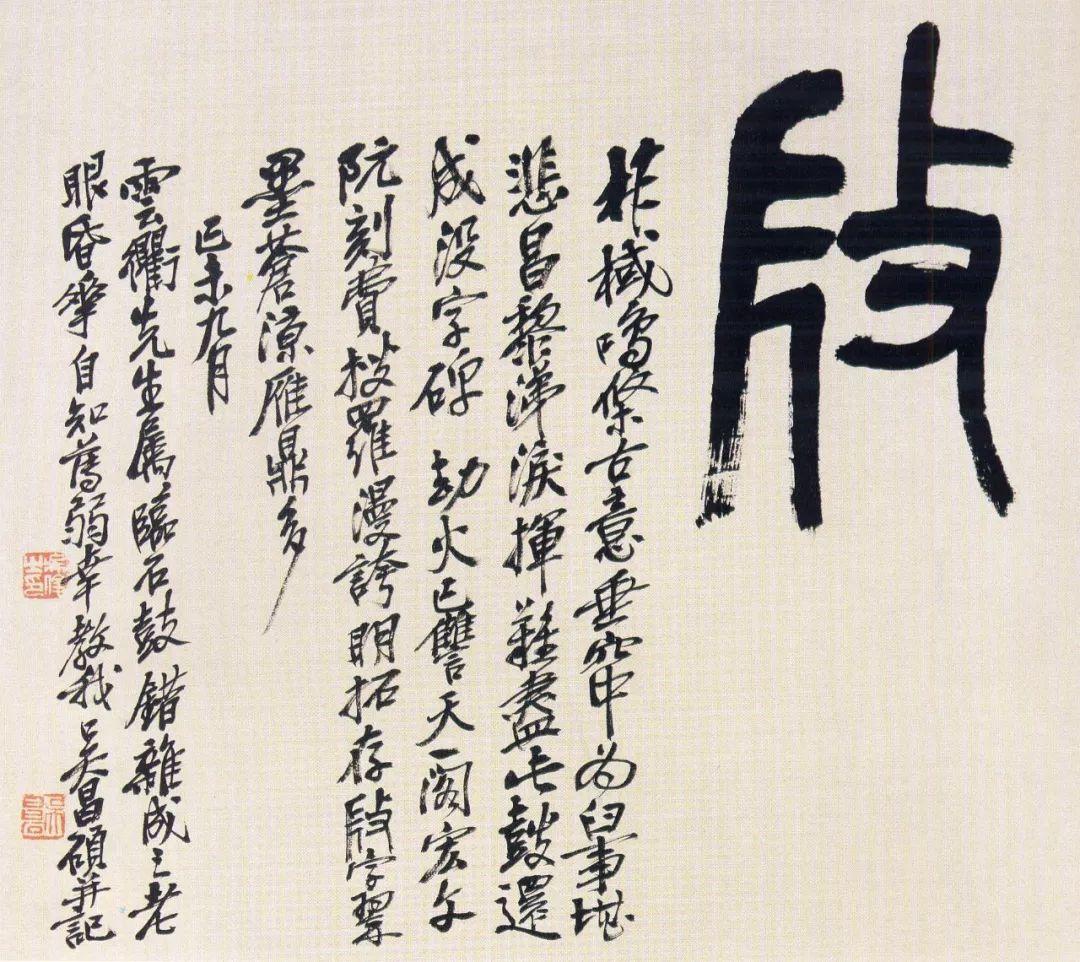 柞棫鳴條古意垂穿中為臼事堪
悲昌黎涕淚揮難盡此鼓還
成没字碑 劫火已讐天一閣宏文
阮刻費搜羅漫誇明拓存字翠
墨蒼涼雁鼎多
己未九月
雲衢先生屬臨石鼓錯雜成之老
眼昏華自知舊弱幸教我吳昌碩并記